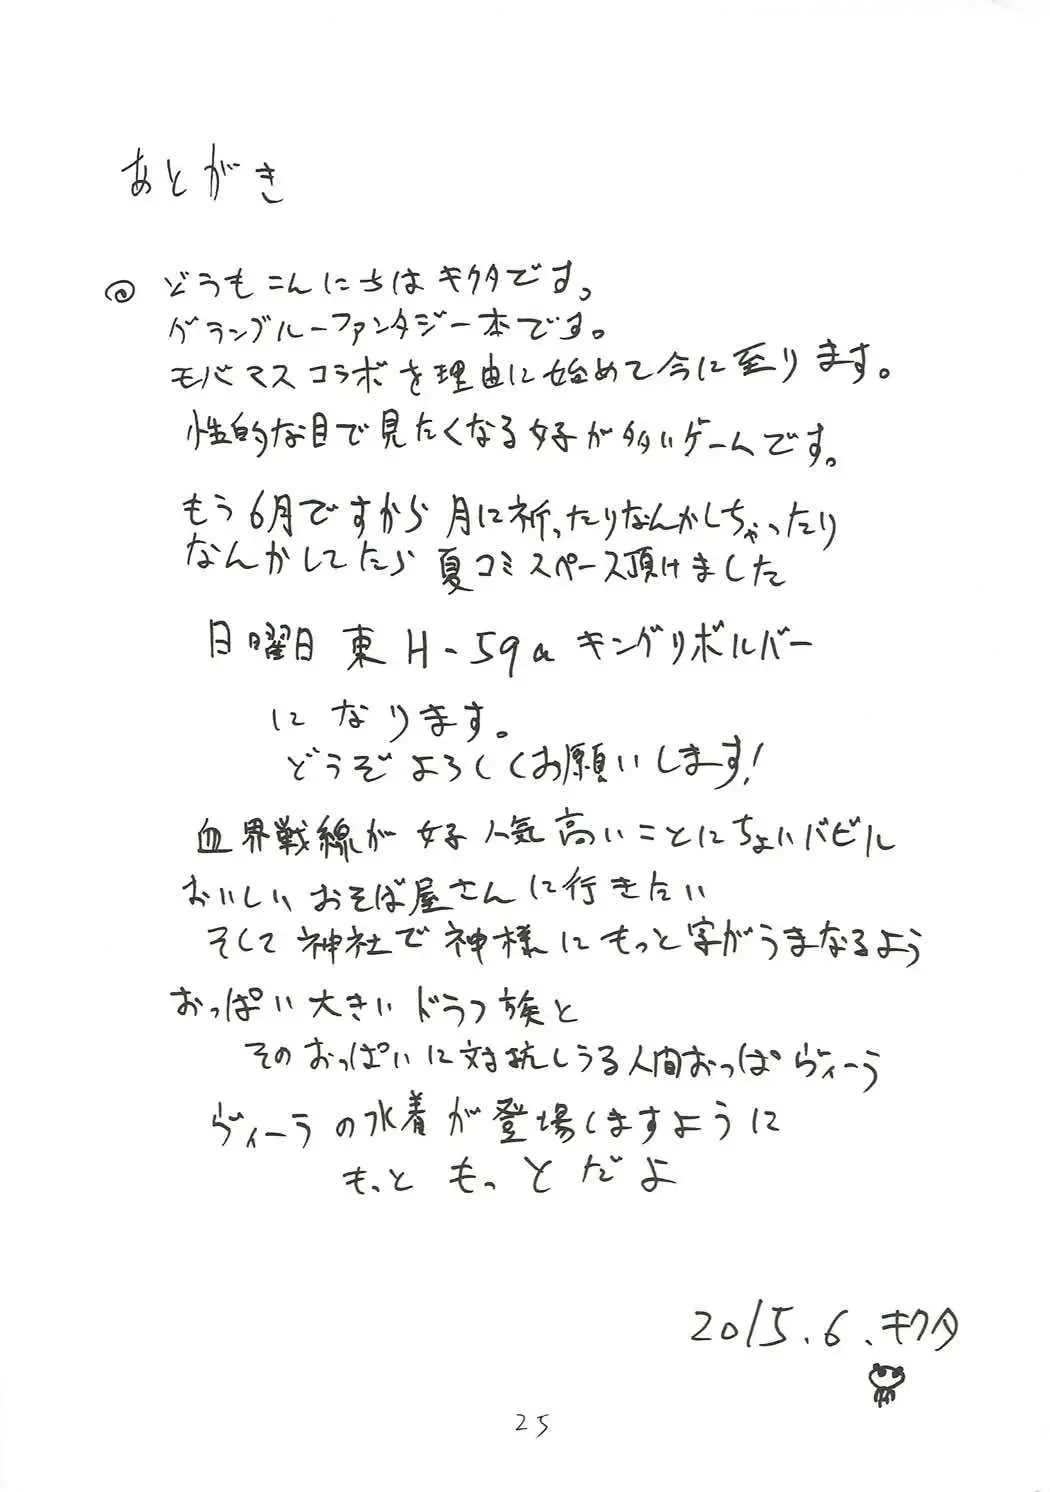 あとがき
◎ どうもこんにちは キクタです。
グランブルーファンタジー本です。
モバマスコラボを理由に始めて今に至ります。
性的な目で見たくなる女子が多いゲームです。
もう6月ですから 月に祈ったりなんかしちゃったり
なんかしてたら 夏コミスペース頂けました
日曜日 東 H-59a キングリボルバー
になります。
どうぞよろしくお願いします!
血界戦線が 女子人気高いことにちょいバビル
おいしい おそば屋さんに行きたい
そして 神社で 神様に もっと字がうまくなるよう
おっぱい大きい ドラフ族と
そのおっぱいに対抗しうる人間おっぱヴィーラ
ヴィーラの水着が登場しますように
もっと もっとだよ
2015.6.キクタ
25